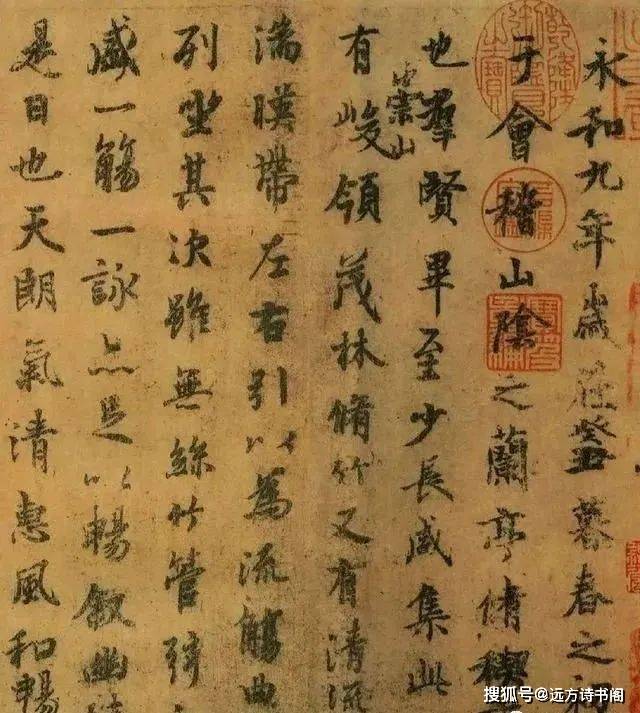 永和九年歲在癸丑暮春之初
于會稽山陰之蘭亭脩禊
也羣賢畢至少長咸集此
崇山
有峻領茂林脩竹又有清流
湍暎帶左右引以為流觴曲
列坐其次雖無絲竹管弦
盛一觴一詠亦足以暢敘幽
是日也天朗氣清惠風和暢
搜狐号@远方诗书阁